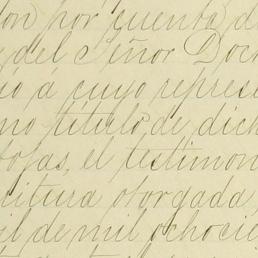 on por cuenta d
del Señor Doc
ió á cuyo repres
no título, de dich
tofas, el testimon
critura otorgada,
il de mil ochocie